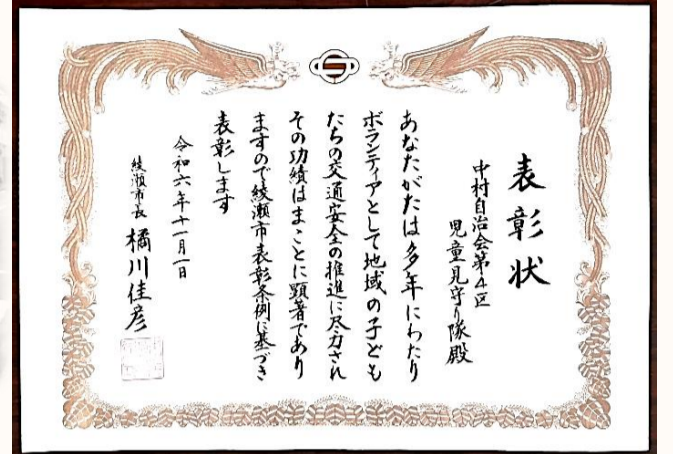 表彰状
中村自治会第4区
児童見守り隊殿
あなたがたは多年にわたり
ボランティアとして地域の子ども
たちの交通安全の推進に尽力され
その功績はまことに顕著であり
ますので綾瀬市表彰条例に基づき
表彰します
令和六年十一月一日
綾瀬市長 橘川佳彦